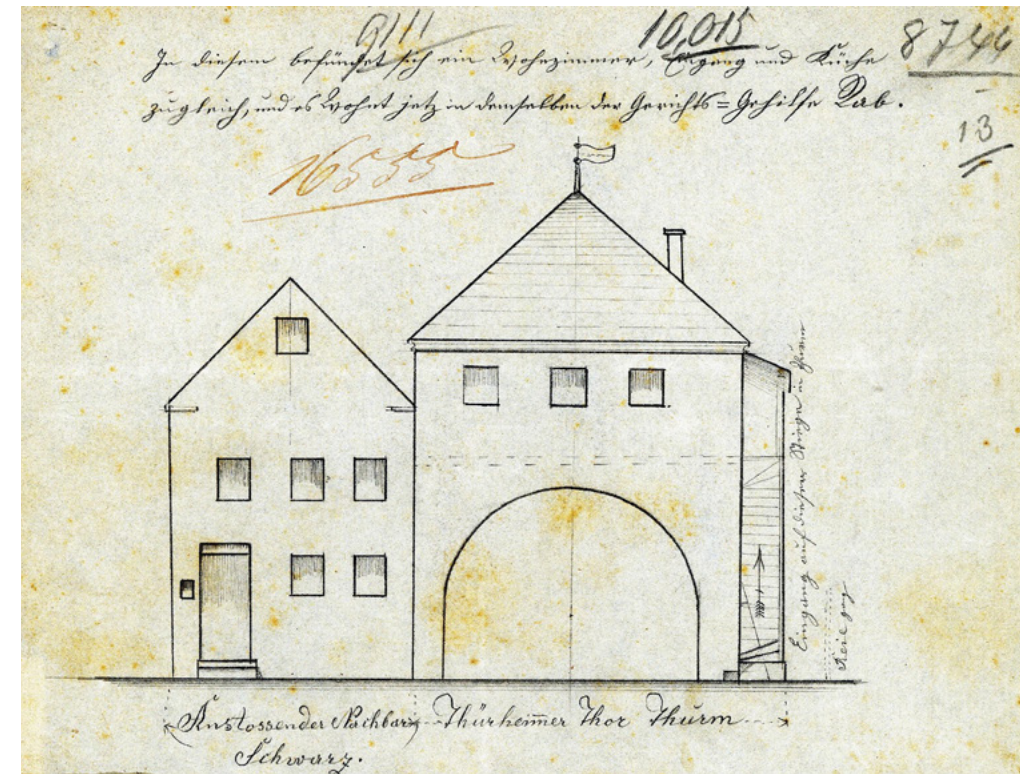 9111 10,015 8744
In diesem befindet sich ein Wohnzimmer, Eingang und Küche
zugleich, und es wohnt jetz in demselben der Gerichts=Gehilfe Rab.
13
16555
Eingang auf dieser Stiege in Thurm
Anstossender Nachbar Thürheimer Thor Thurm
Schwarz.